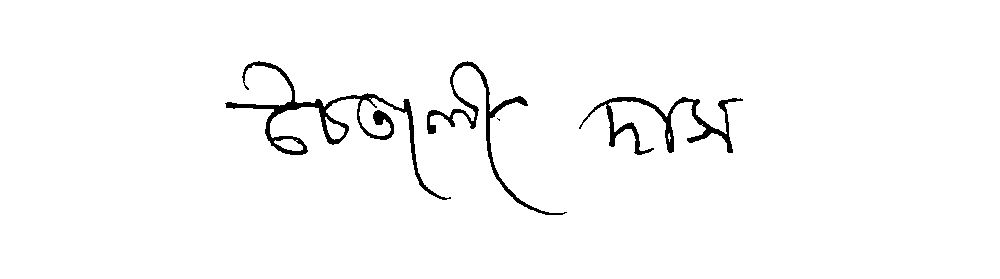 চৈতালী দাস